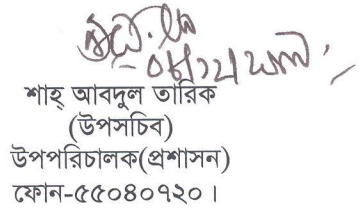 শাহ্ আবদুল তারিক
(উপসচিব)
উপপরিচালক(প্রশাসন)
ফোন-৫৫০৪০৭২০।